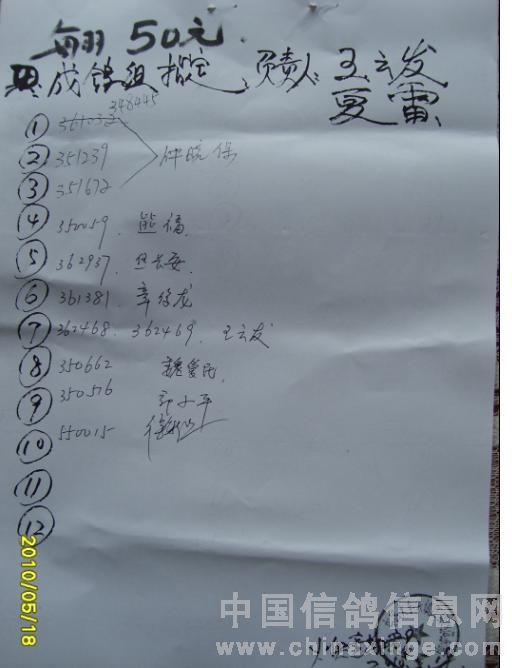 每羽 50元
成鸽组指定、负责人: 王云发
夏雷
① 361032 348445
② 351239 钟晓保
③ 351672
④ 350059. 熊福
⑤ 362937.
⑥ 361381. 章绪龙
⑦ 362468. 362469. 王云发
⑧ 350662 魏爱民.
⑨ 350516 郭小平
⑩ 550015
⑪
⑫
2010/05/18
中国信鸽信息网
www.chinaxinge.com